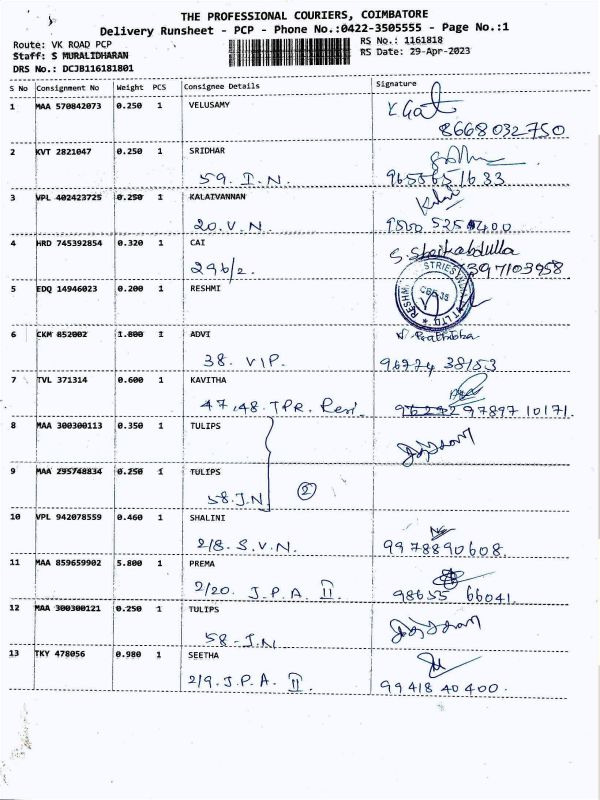 THE PROFESSIONAL COURIERS, COIMBATORE
Delivery Runsheet - PCP - Phone No.:0422-3505555 - Page No.:1
Route: VK ROAD PCP RS No.: 1161818
Staff: S MURALIDHARAN RS Date: 29-Apr-2023
DRS No.: DCJB116181801
S No Consignment No Weight PCS Consignee Details Signature
1 MAA 570842073 0.250 1 VELUSAMY
8668032750
2 KVT 2821047 0.250 1 SRIDHAR
59. I.N. 9655651633
3 VPL 402423725 0.250 1 KALAIVANNAN
20.V.N.
4 HRD 745392854 0.320 1 CAI
296/2.
5 EDQ 14946023 0.200 1 RESHMI
6 CKM 852002 1.800 1 ADVI
38. VIP. 96774 38153
7 TVL 371314 0.600 1 KAVITHA
47,48. TPR. Resi. 97897 10171.
8 MAA 300300113 0.350 1 TULIPS
9 MAA 295748834 0.250 1 TULIPS
58.J.N. 2
10 VPL 942078559 0.460 1 SHALINI
2/8. S.V.N. 9978890608.
11 MAA 859659902 5.800 1 PREMA
2/20. J.P.A. II. 98655 66041.
12 MAA 300300121 0.250 1 TULIPS
58-J.N.
13 TKY 478056 0.980 1 SEETHA
2/9. J.P.A. II. 99418 40400.